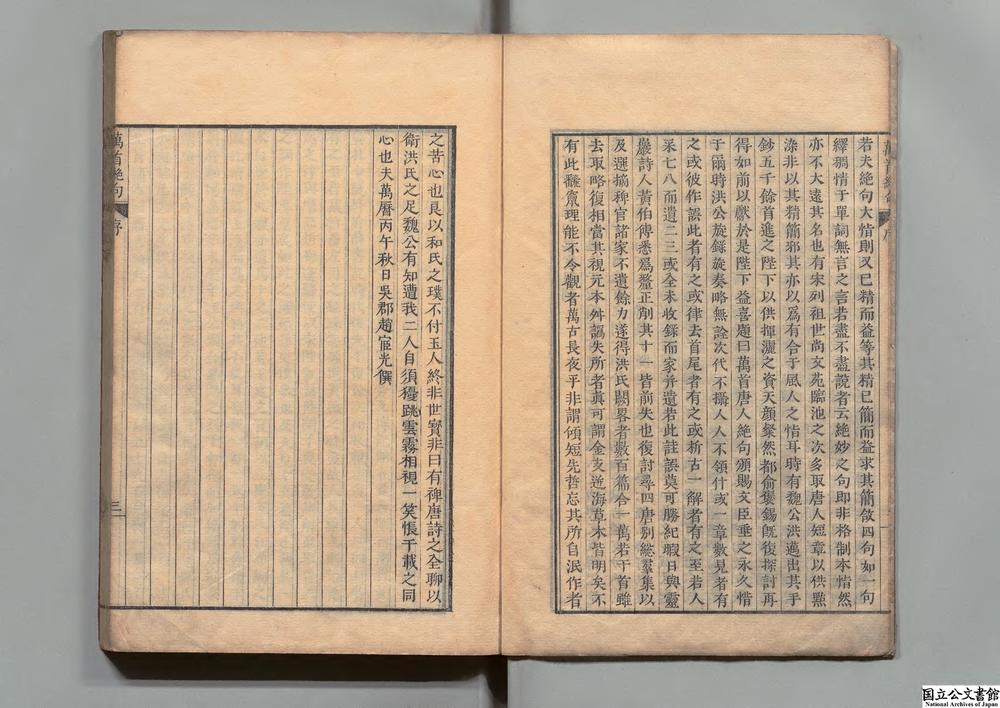 若夫絶句大惜則又已精而益等其精已簡而益求其簡故四句如一句
繹獨情于單詞無言之言若盡不盡說者云絶妙之句即非格制本情然
亦不大遠其名也有宋列祖世尚文苑臨池之次多取唐人短章以供點
染非以其精簡邪其亦以爲有合于風人之情耳時有魏公洪邁出其手
鈔五千餘首進之陛下以供揮灑之資天顔粲然都俞褒錫旣復探討再
得如前以獻於是陛下益喜題曰萬首唐人絶句頒賜文臣垂之永久惜
于爾時洪公旋錄旋奏略無詮次代不攝人人不領什或一章數見者有
之或彼作誤此者有之或律去首尾者有之或析古一解者有之至若人
采七八而遺二三或全未收錄而家并遺若此註誤莫可勝紀暇日與靈
巖詩人黃伯傳悉爲釐正削其十一皆前失也復討尋四唐别緫羣集以
及選摘稗官諸家不遺餘力遂得洪氏闕畧者數百篇合一萬若干首雖
去取略復相當其視元本舛譌失所者眞可謂金支逆海草木皆明矣不
有此釐竄理能不令觀者萬古長夜乎非謂傾短先哲忘其所自泯作者
之苦心也良以和氏之璞不付玉人終非世寳非曰有裨唐詩之全聊以
衛洪氏之足魏公有知遭我二人自須𨅊跳雲霧相視一笑悵千載之同
心也夫萬曆丙午秋日吳郡趙宧光僎
萬首絶句
序
三
国立公文書館
National Archives of Japan